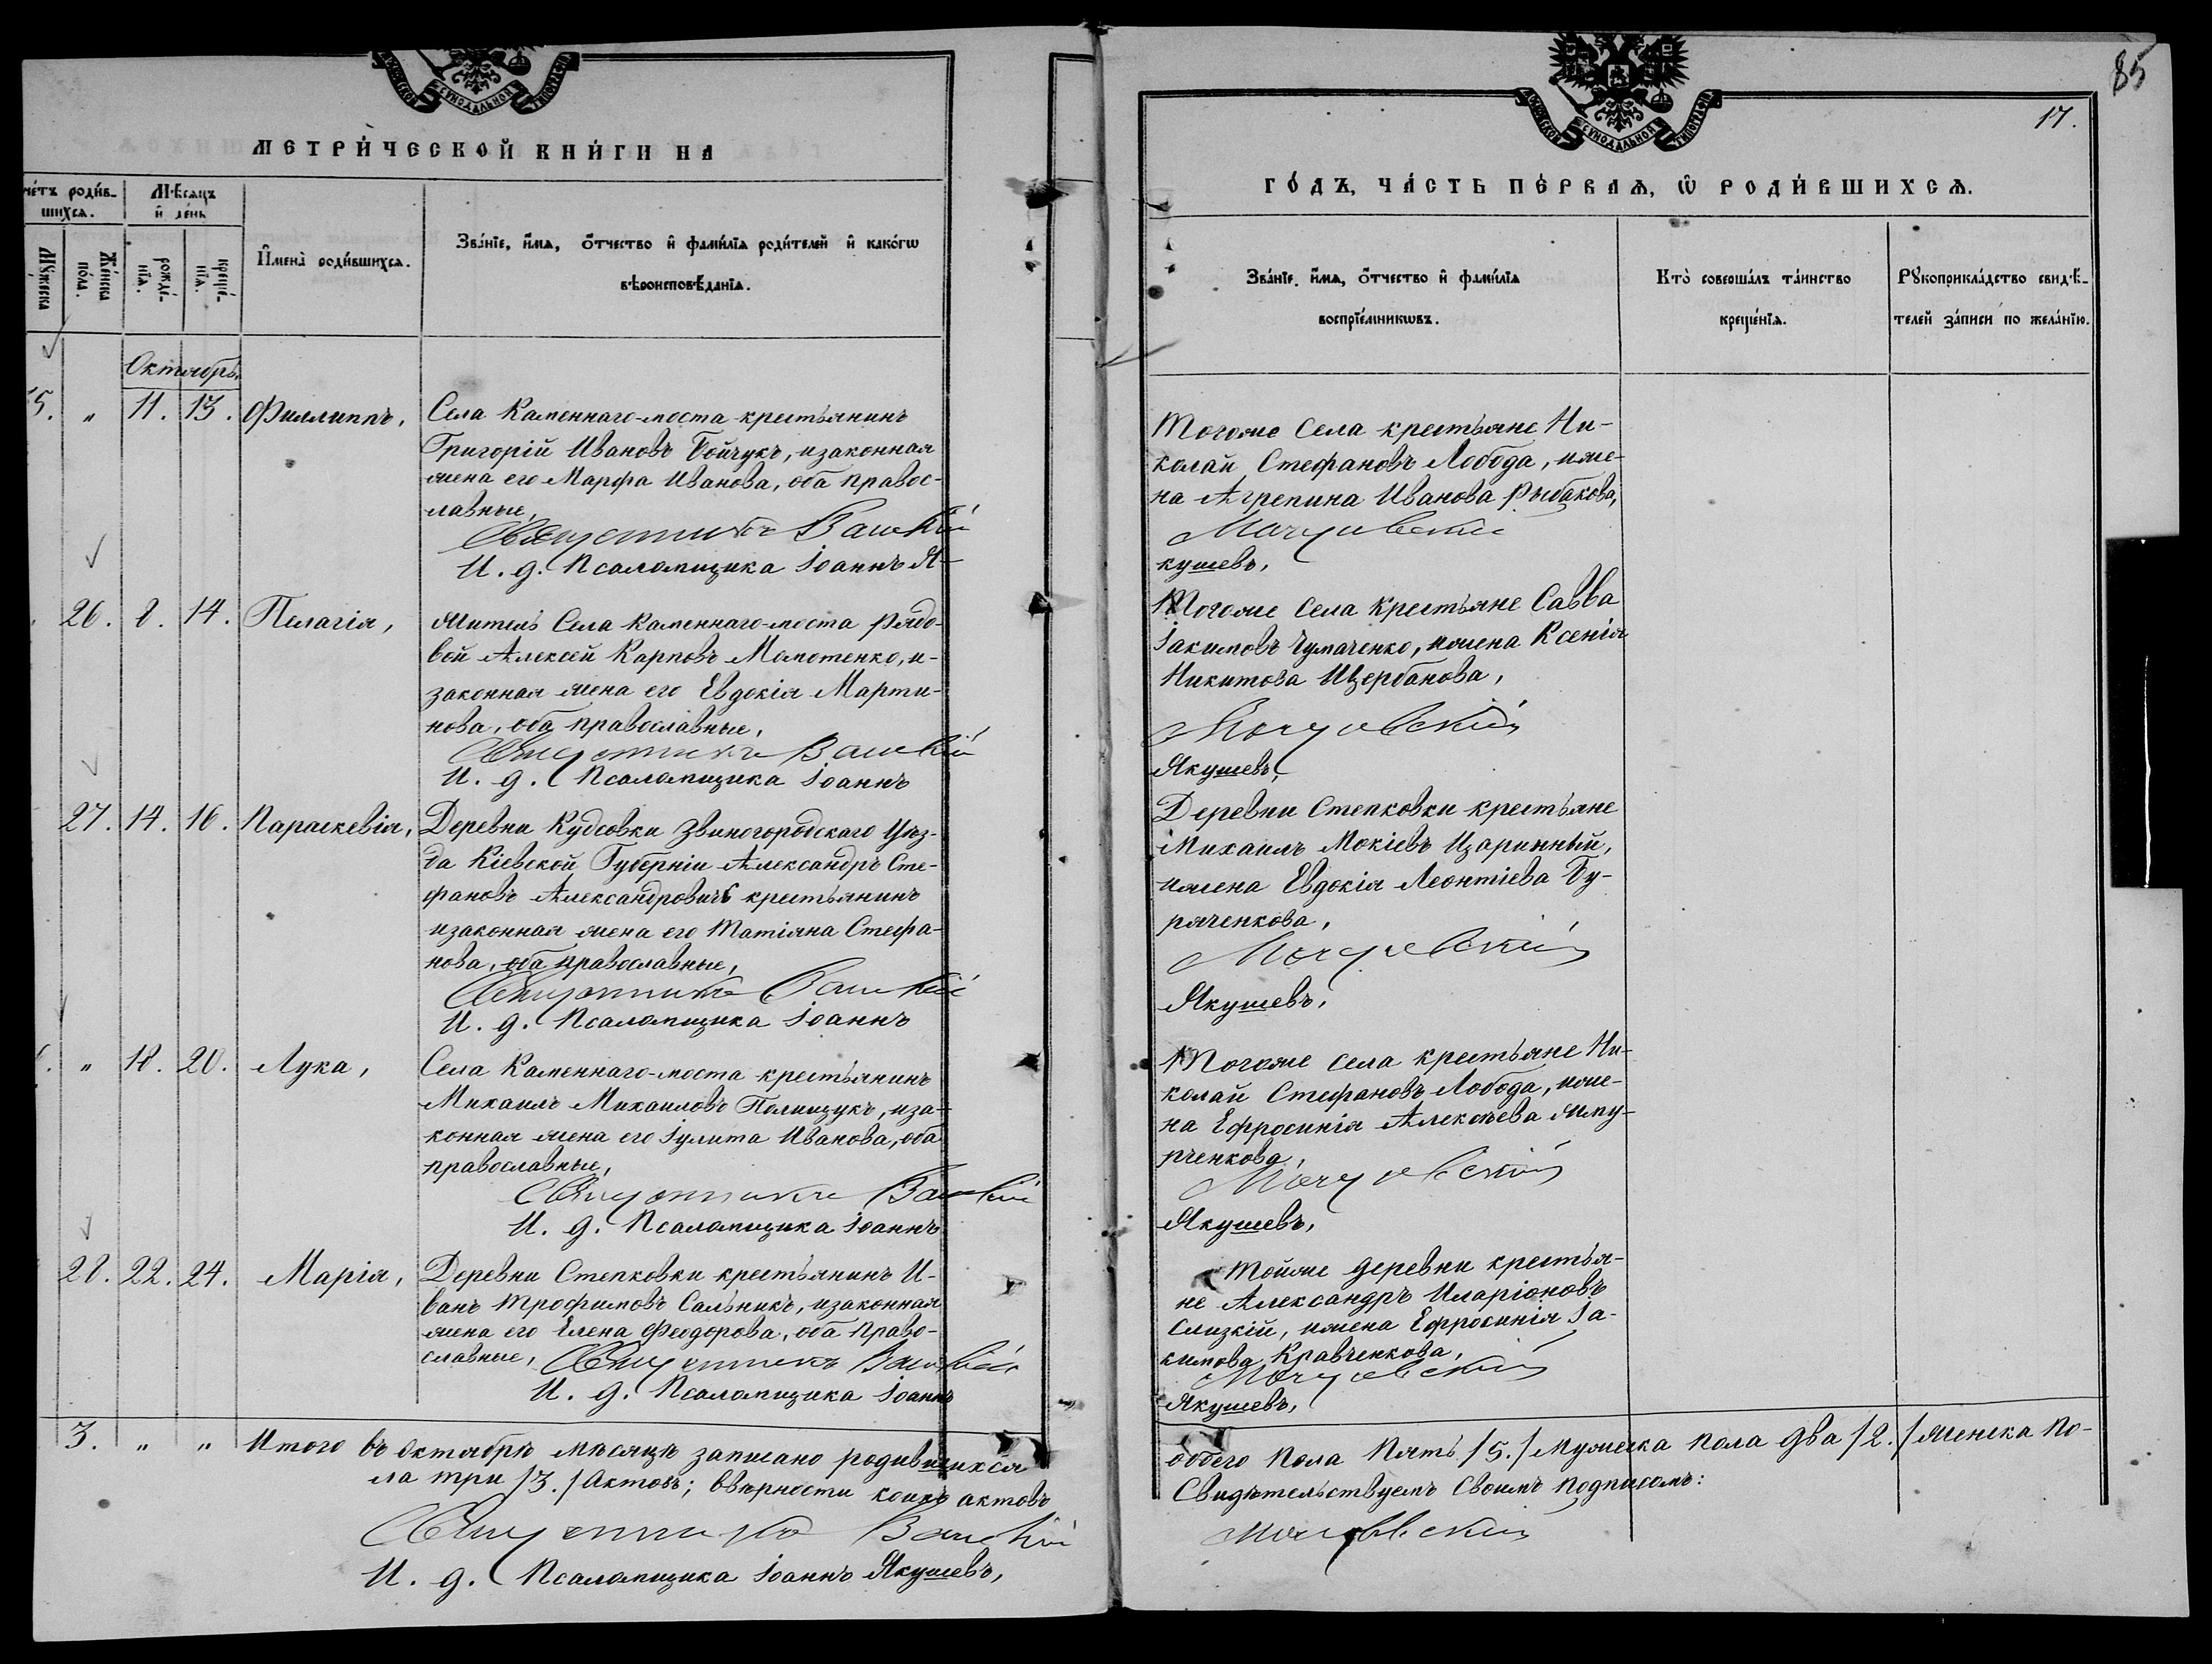 85
17.
МЕТРИ́ЧЕСКОЙ КНИ́ГИ НА
ГО́ДЪ, ЧА́СТЬ ПЕ́РВАѦ, Ѡ РОДИ́ВШИХСѦ.
че́тъ роди́в-
шихсѧ.
Мѣсѧцъ
и де́нь
Мꙋ́жеска
Же́нска
по́ла.
рожде́-
нїѧ.
креще́-
нїѧ.
Имена̀ роди́вшихсѧ.
Зва́нїе, и́мѧ, о́тчество и фами́лїѧ роди́телей и како́гѡ
вѣроисповѣ́данїѧ.
Зва́нїе, и́мѧ, о́тчество и фами́лїѧ
воспрїе́мникѡвъ.
Кто̀ соверша́лъ та́инство
креще́нїѧ.
Рꙋкоприкла́дство свидѣ́-
телей за́писи по жела́нїю.
Октябрь.
5. " 11. 13. Филлиппъ,
Села Каменнаго-моста крестьянинъ
Григорій Ивановъ Бойчукъ, изаконная
жена его Марфа Иванова, оба правос-
лавные,
Священникъ
И. д. Псаломщика Іоаннъ Я-
Тогоже села крестьяне Ни-
колай Стефановъ Лобода, ижe-
на Агрепина Иванова Рыбакова,
кушевъ,
26. 8. 14. Пелагія,
Житель Села Каменнаго-моста рядо-
вой Алексей Карповъ Мамотенко, и-
законная жена его Евдокія Марти-
нова, оба православные,
Священникъ
И. д. Псаломщика Іоаннъ
Тогоже села крестьяне Савва
Іакимовъ Чумаченко, ижена Ксенія
Никитова Щербанова,
Якушевъ,
27. 14. 16. Параскевія,
Деревни Кудсовки Звиногородскаго Уѣз-
да Кіевской Губерніи Александръ Сте-
фановъ Александровичъ крестьянинъ
изаконная жена его Татіяна Стефа-
нова, оба православные,
Священникъ
И. д. Псаломщика Іоаннъ
Деревни Степковки крестьяне
Михаилъ Мокіевъ Царинный,
ижена Евдокія Леонтіева Бу-
ряченкова,
Якушевъ,
" 18. 20. Лука,
Села Каменнаго-моста крестьянинъ
Михаилъ Михаиловъ Полищукъ, иза-
конная жена его Іулита Иванова, оба
православные,
Священникъ
И. д. Псаломщика Іоаннъ
Тогоже села крестьяне Ни-
колай Стефановъ Лобода, иже-
на Ефросинія Алексѣева
рченкова,
Якушевъ,
28. 22. 24. Марія,
Деревни Степковки крестьянинъ И-
ванъ Трофимовъ Сальникъ, изаконная
жена его Елена Феодорова, оба право-
славные, Священникъ
И. д. Псаломщика Іоаннъ
Тойже деревни крестья-
не Александръ Иларіоновъ
Слизкій, ижена Ефросинія Іа-
кимова Кравченкова,
Якушевъ,
3. " " Итого въ Октябрѣ мѣсяцѣ записано родившихся обоего пола пять /5./ Мужеска пола два /2./ женска по-
ла три /3./ Актовъ; ввѣрности коихъ актовъ Свидѣтельствуемъ Своимъ подписомъ:
Священникъ
И. д. Псаломщика Іоаннъ Якушевъ,